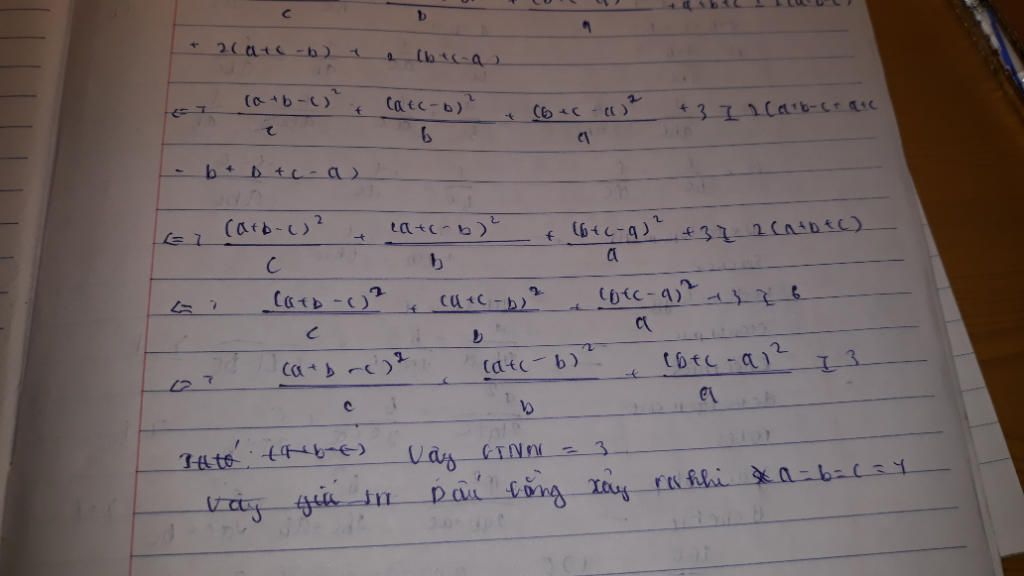 c b a
+ 2(a+c-b) + 2 (b+c-a)
<=> (a+b-c)²/c + (a+c-b)²/b + (b+c-a)²/a +3 ≥ 2(a+b-c+a+c
- b + b + c - a)
<=> (a+b-c)²/c + (a+c-b)²/b + (b+c-a)²/a +3 ≥ 2(a+b+c)
<=> (a+b-c)²/c + (a+c-b)²/b + (b+c-a)²/a +3 ≥ 6
<=> (a+b-c)²/c + (a+c-b)²/b + (b+c-a)²/a ≥ 3
Vậy GTNN = 3
Vậy giá trị Dấu bằng xảy ra khi a=b=c=1